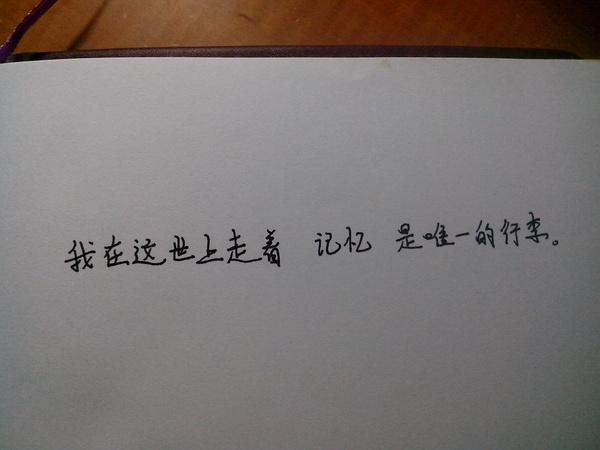 我在这世上走着 记忆 是唯一的行李。